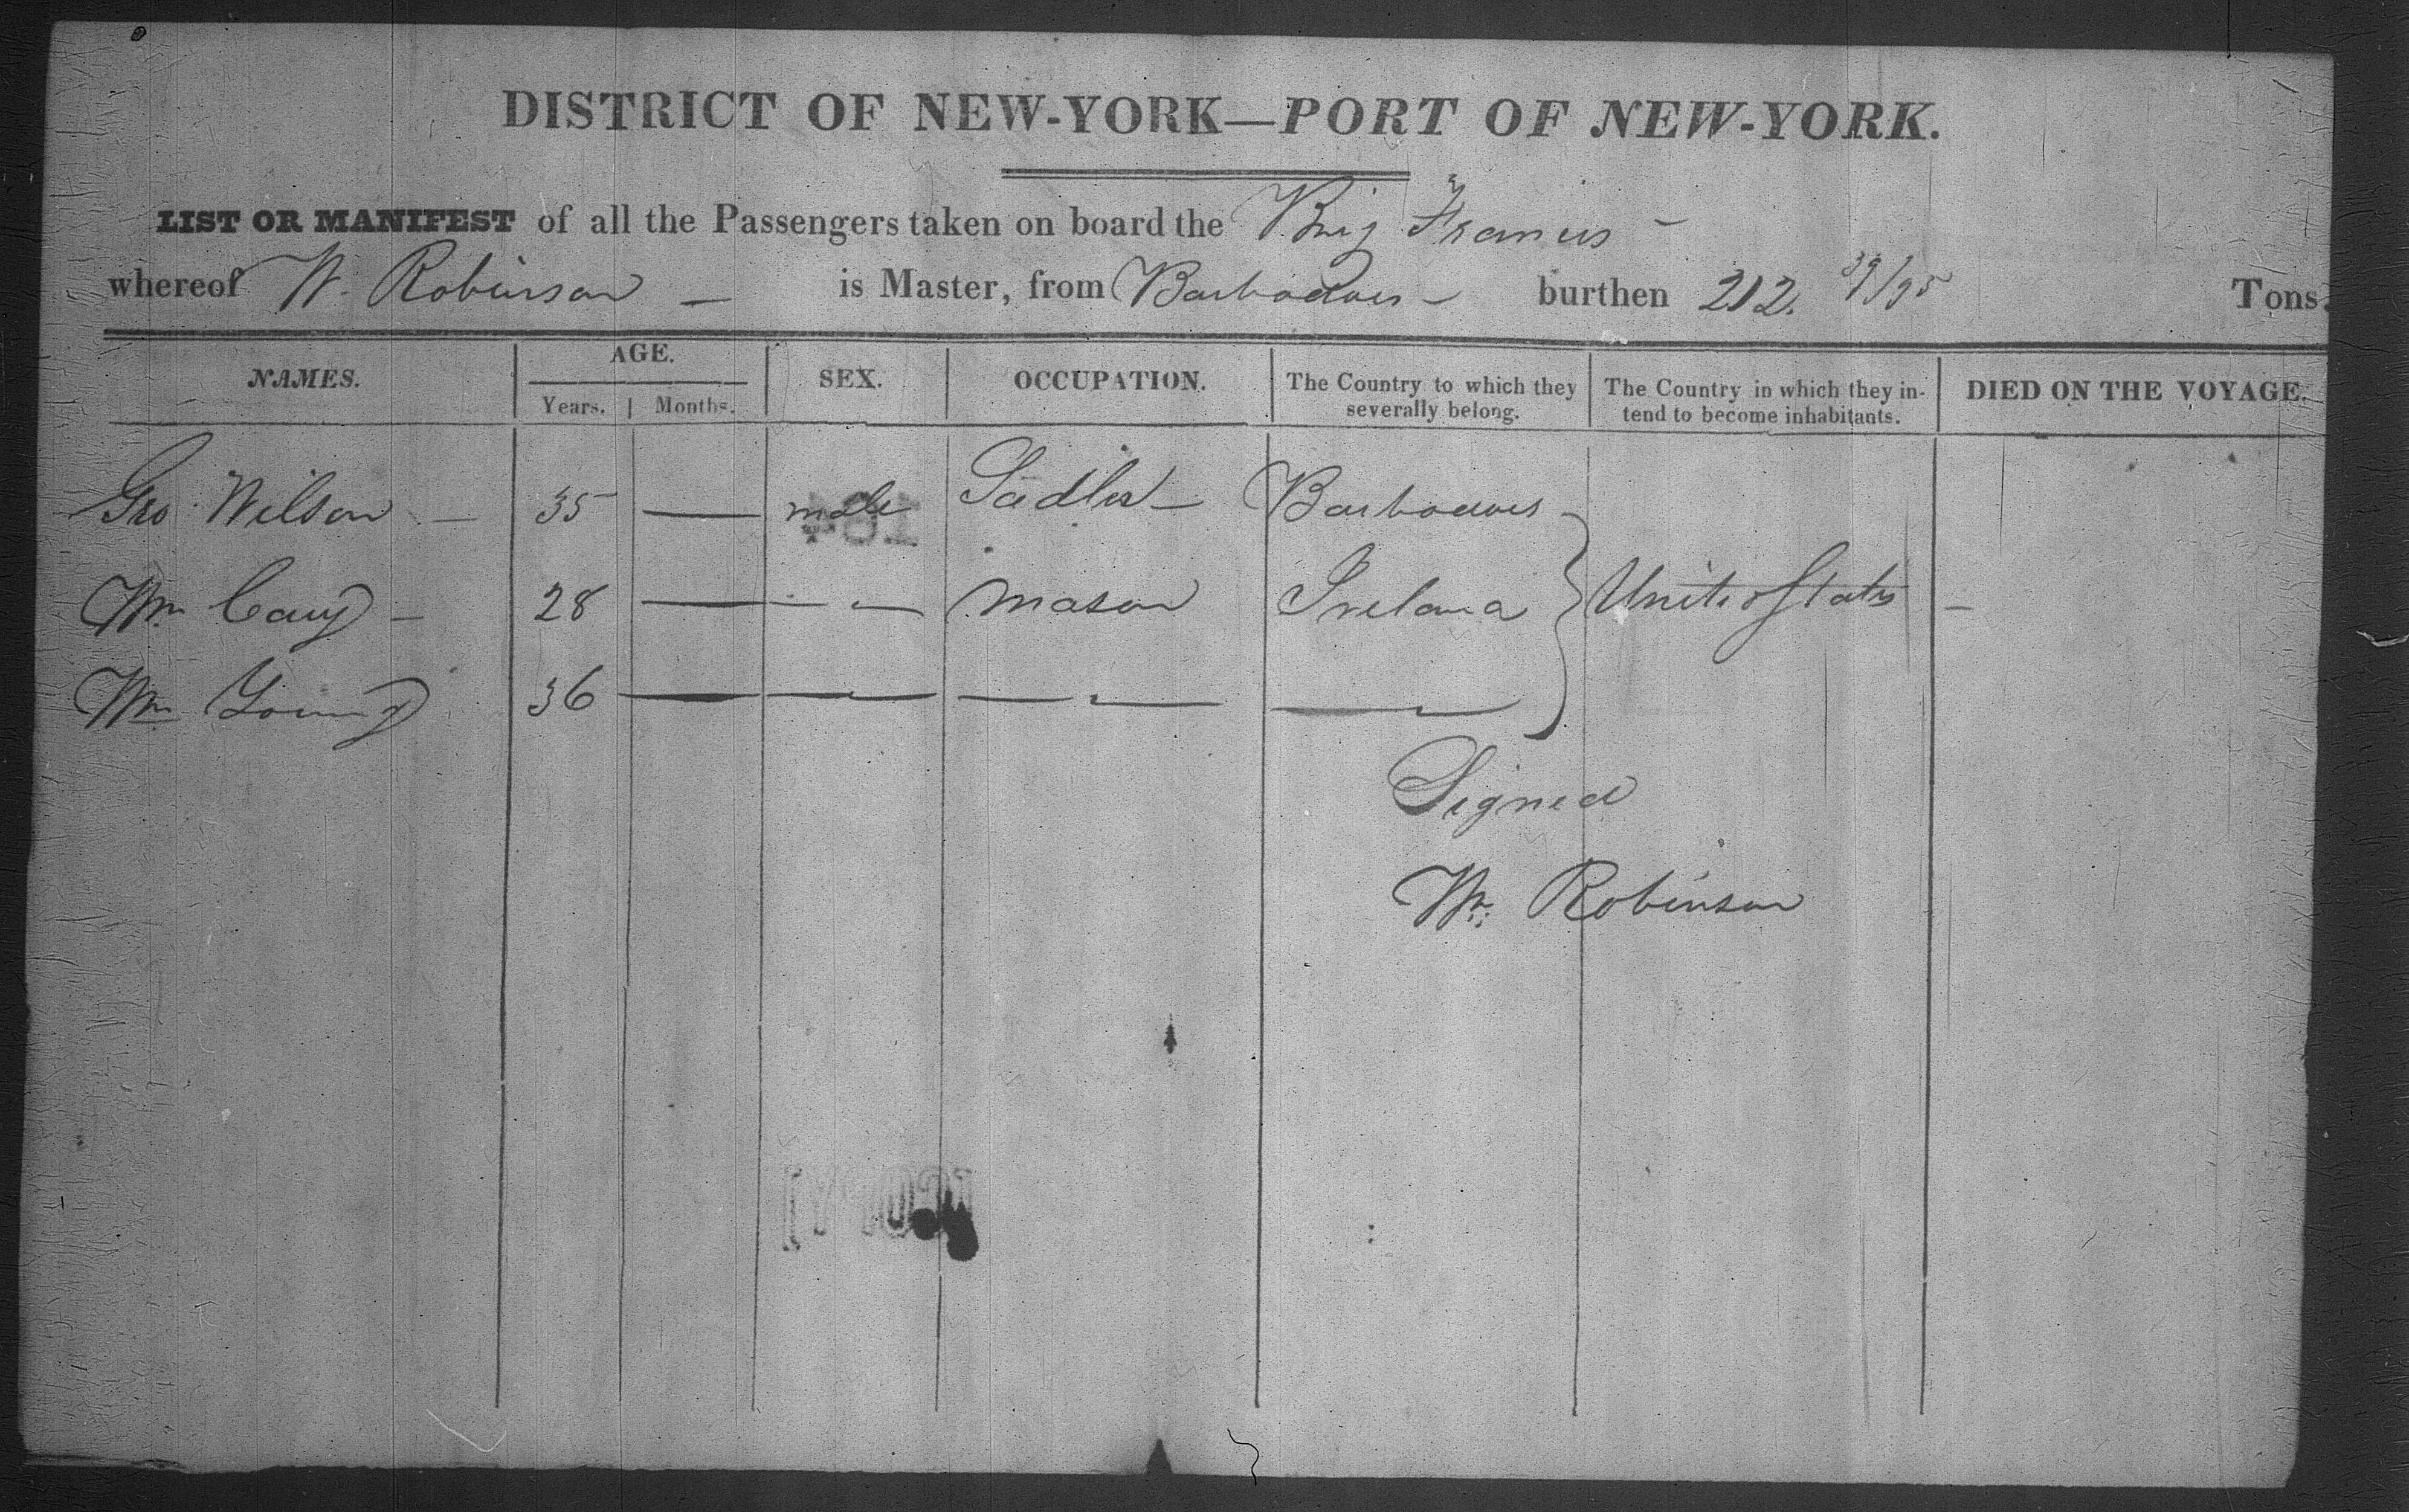 DISTRICT OF NEW-YORK—PORT OF NEW-YORK.
LIST OR MANIFEST of all the Passengers taken on board the Brig Francis -
whereof W. Robinson - is Master, from Barbadoes - burthen 212. 39/95 Tons.
NAMES. AGE. SEX. OCCUPATION. The Country to which they severally belong. The Country in which they intend to become inhabitants. DIED ON THE VOYAGE.
Years. Months.
Geo Wilson - 35 — male Sadler - Barbadoes -
Wm Cary - 28 — — Mason Ireland United States -
Wm Young 36 — — — —
Signed
Wm Robinson